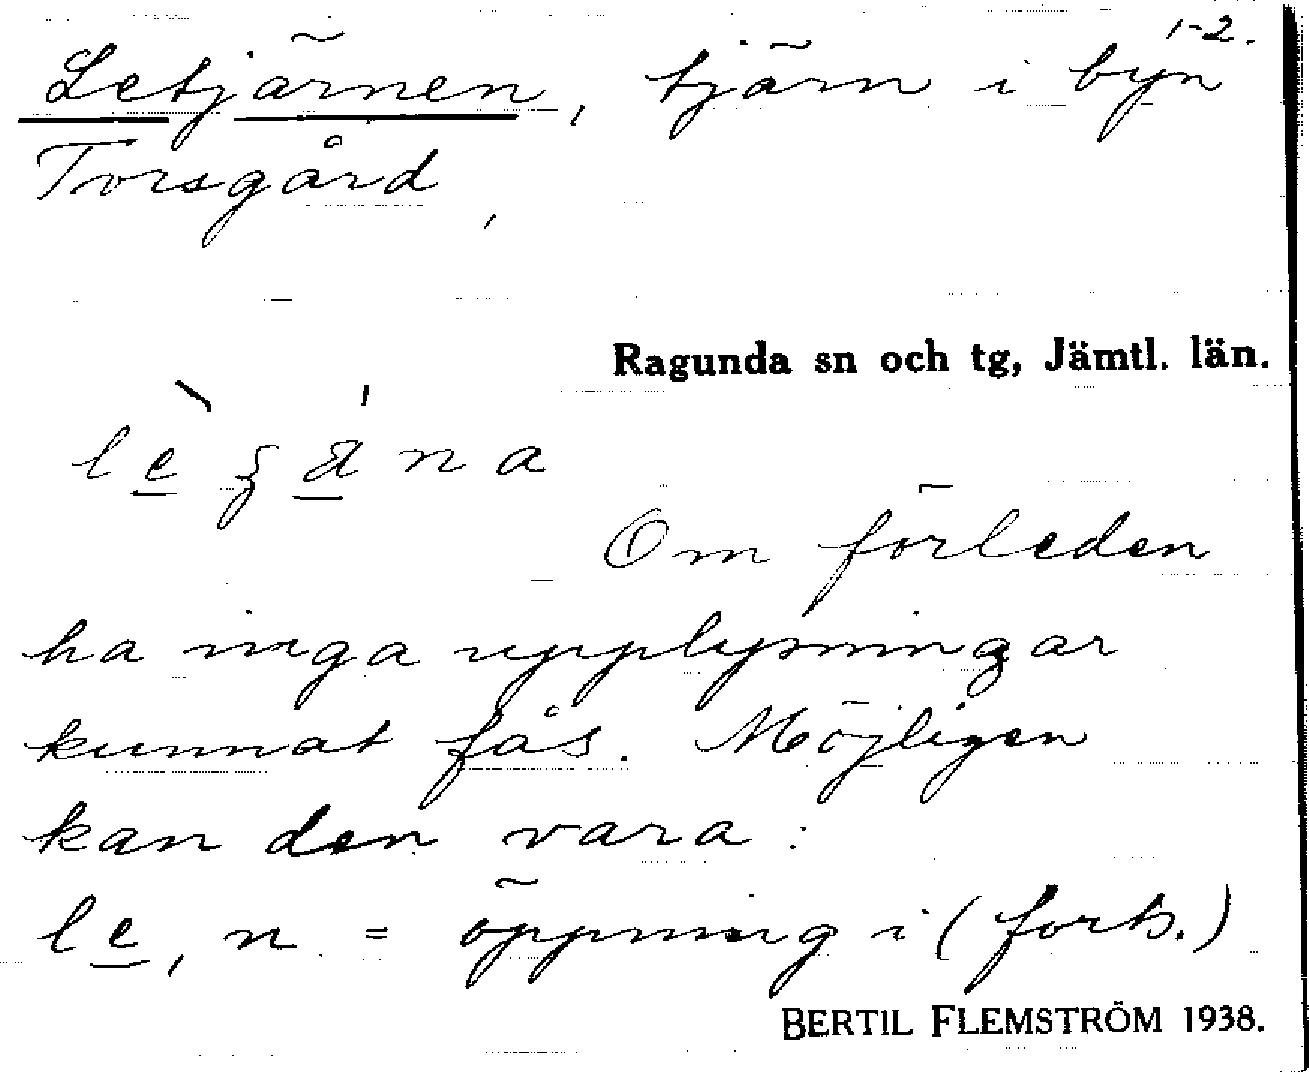 1-2.
Letjärnen, tjärn i byn
Torsgård,
Ragunda sn och tg, Jämtl. län.
Om förleden
ha inga upplysningar
kunnat fås. Möjligen
kan den vara:
le, n = öppning i (forts.)
BERTIL FLEMSTRÖM 1938.